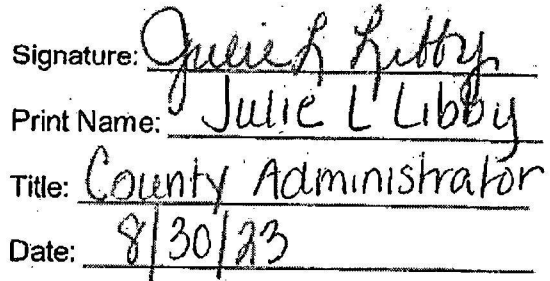 Signature: Julie L Libby
Print Name: Julie L Libby
Title: County Administrator
Date: 8/30/23